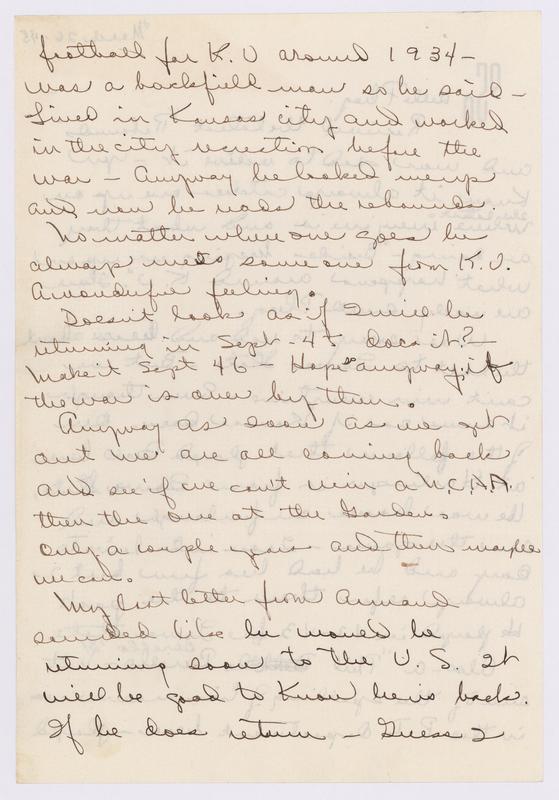 football for K. U around 1934-
was a backfield man so he said -
Lived in Kansas city and worked
in the city recreation before the
war - Anyway he looked me up
and now he reads the rebounds.
No matter where one goes he
always meets some one from K.U.
A wonderful feeling.
Doesn't look as if I will be
returning in Sept - 45 does it? -
Make it Sept 46 - Hope so anyway, if
the war is over by then.
Anyway as soon as we get
out we are all coming back
and see if we can't win a N.C.A.A.
then the one at the Garden.
Only a couple years and then maybe
we can.
My last letter from Armand
sounded like he would be
returning soon to the U. S. It
will be good to know he is back.
If he does return - Guess I